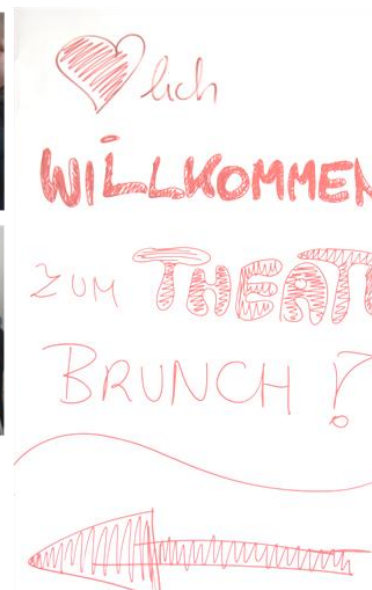 lich
WILLKOMMEN
ZUM THEAT
BRUNCH!